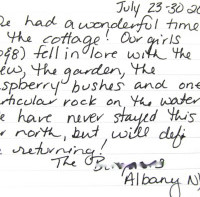 July 23-30 20
e had a wonderful time
the cottage! Our girls
&8) fell in love with the
ew, the garden, the
spberry bushes and one
rticular rock on the water
e have never stayed this
r north, but will defi
e returning!
The
Albany N